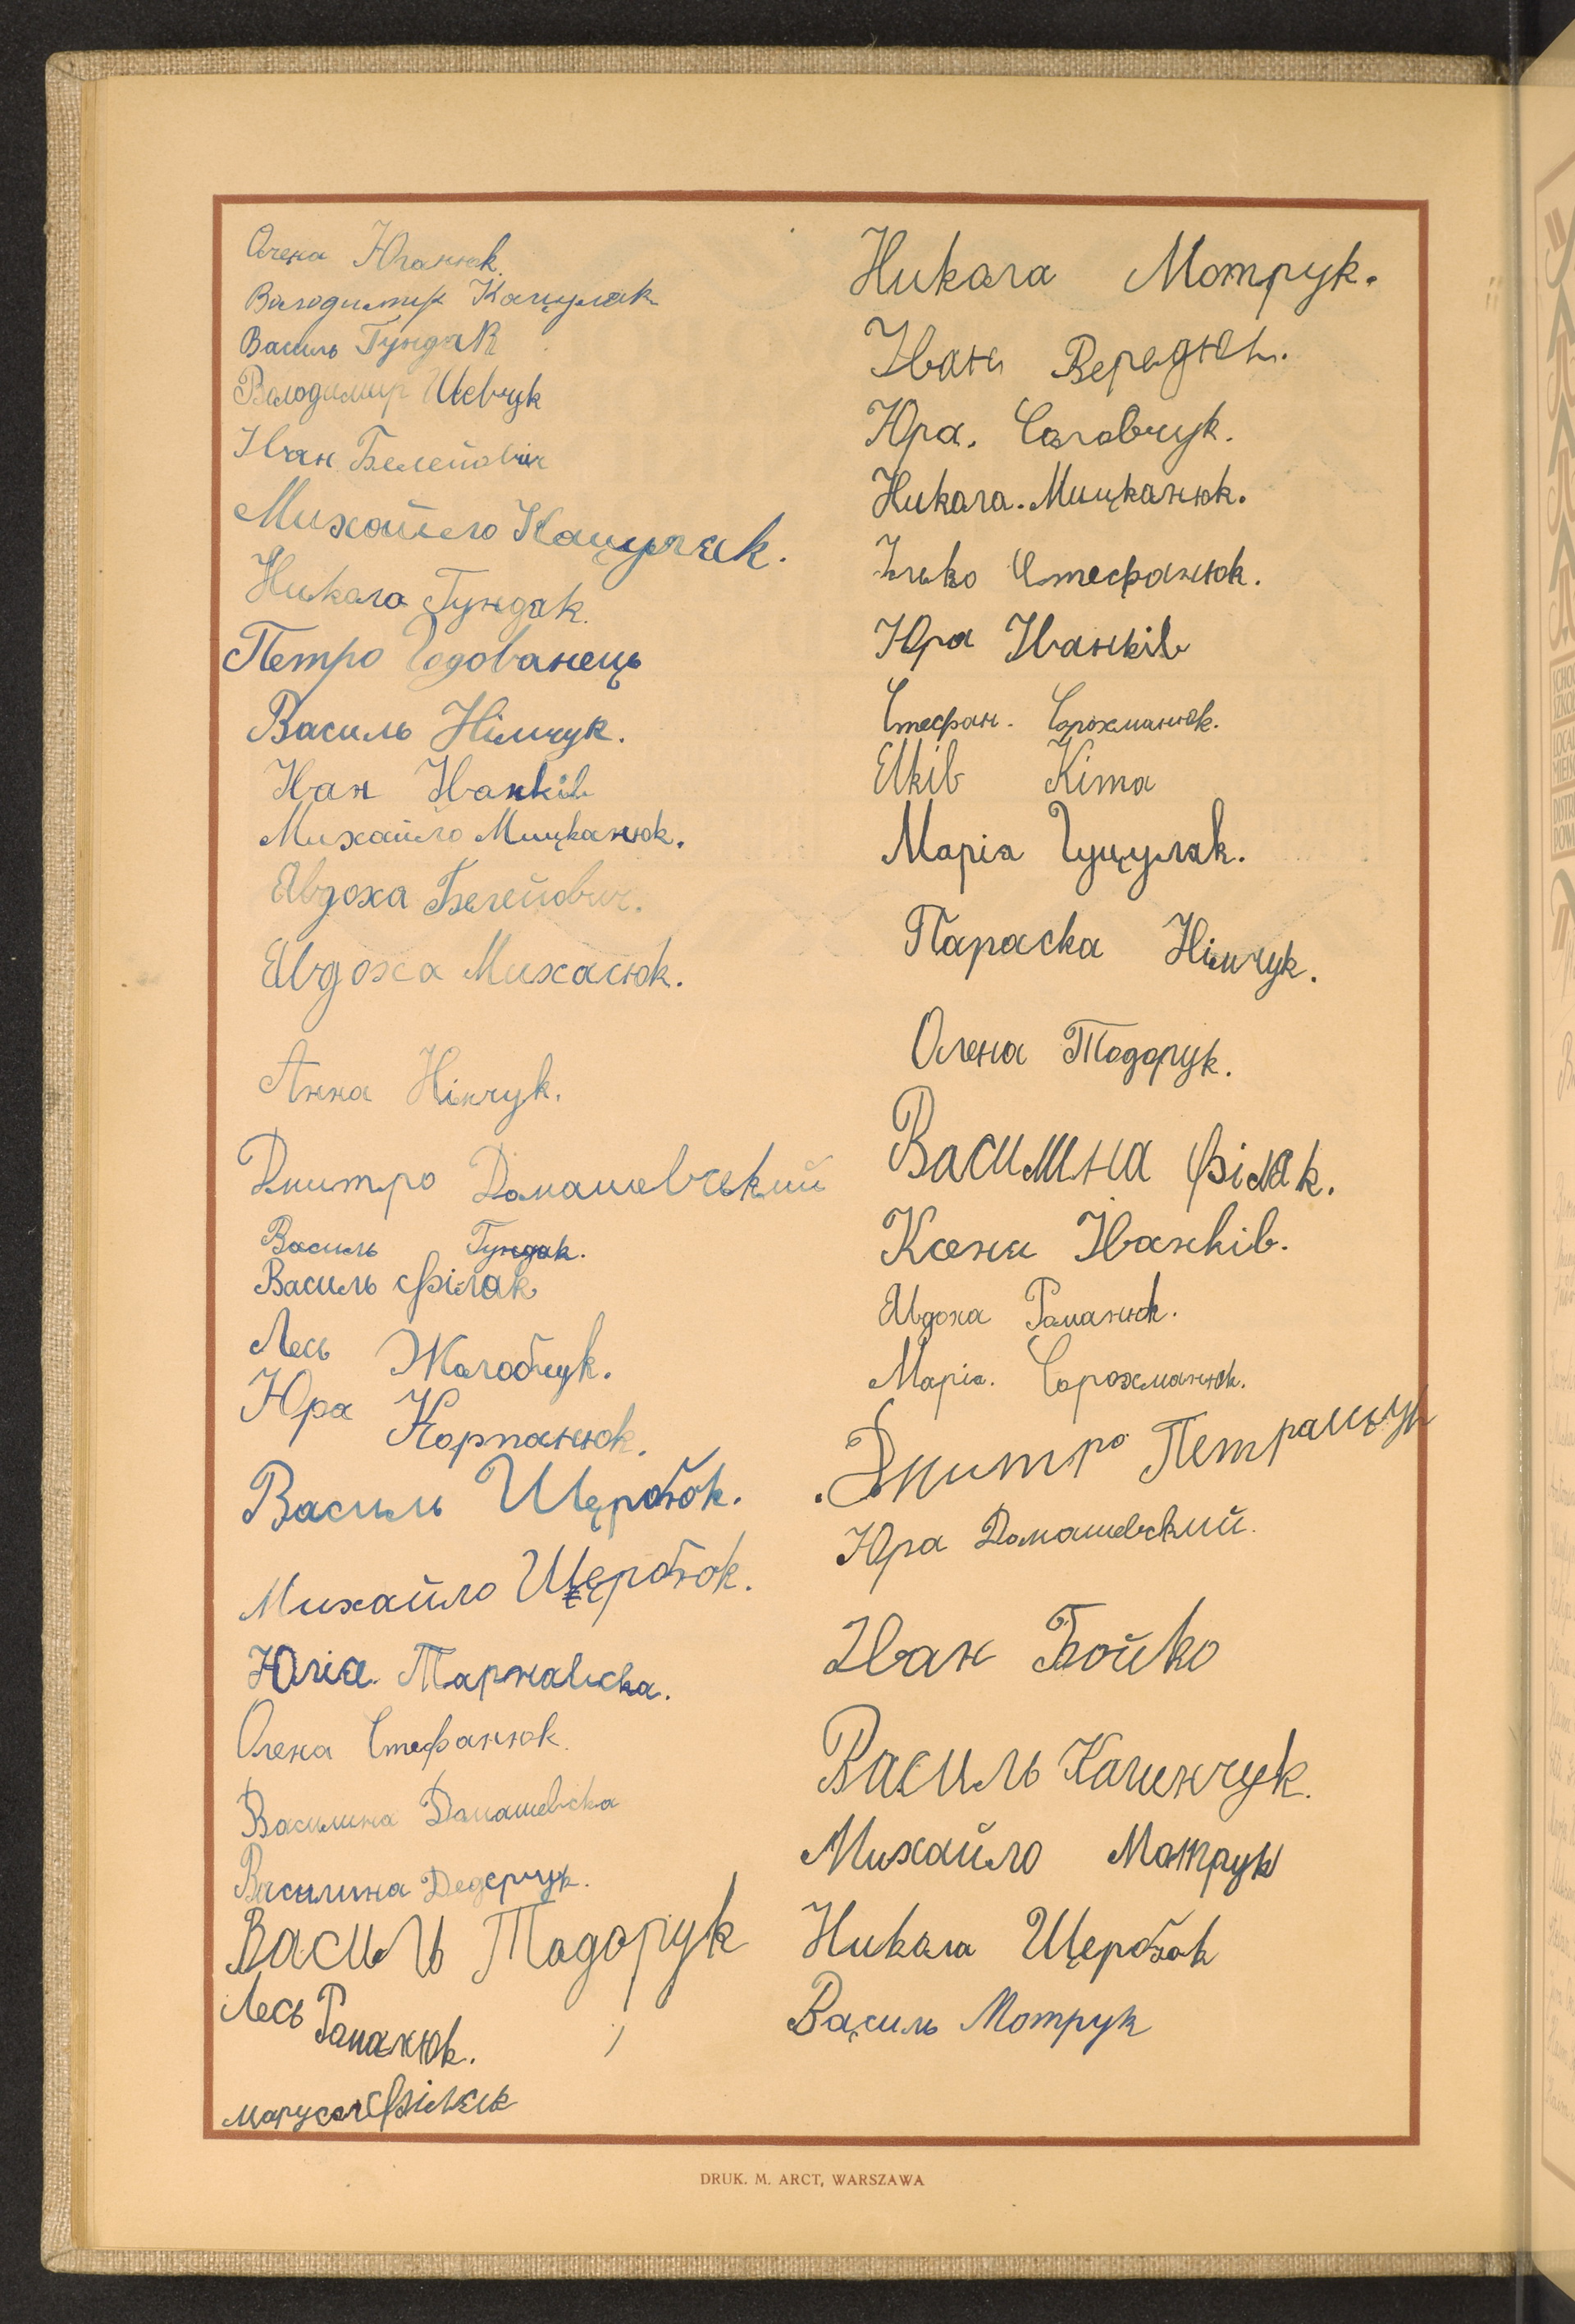 Олена Юганюк.
Володимир Кацулак
Василь Гундак
Володимир Шевчук
Іван Белейович
Михайло Кацулак.
Никола Гундак.
Петро Годованець
Василь Німчук.
Іван Іванків
Михайло Мицканюк.
Явдоха Белейович.
Явдоха Михасюк.
Анна Нікчук.
Дмитро Домашевський
Василь Гундак.
Василь Філак
Лесь Жолобчук.
Юра Корпанюк.
Василь Щербюк.
Михайло Щербюк.
Юлія Тарнавска.
Олена Стефанюк.
Василина Домашевска
Василина Дедерчук.
Василь Тодорук
Лесь Романюк.
Маруся Філяк
Никола Мотрук.
Іван
Юра. Соловчук.
Никола. Мицканюк.
Ілько Стефанюк.
Юра Іванків
Стефан. Сорохманюк.
Яків Кіта
Марія Гуцуляк.
Параска Німчук.
Олена Тодорук.
Василина Філяк.
Ксеня Іванків.
Явдоха Романюк.
Марія. Сорохманюк.
Дмитро
Юра Домашевский.
Іван Бойко
Василь Калинчук.
Михайло Мотрук
Никола Щербюк
Василь Мотрук
DRUK. M. ARCT, WARSZAWA